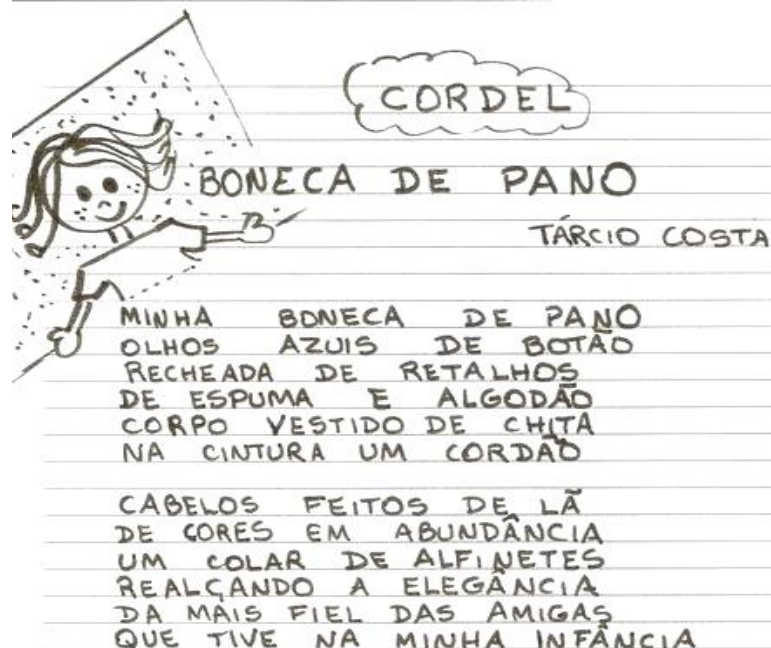 CORDEL
BONECA DE PANO
TÁRCIO COSTA
MINHA BONECA DE PANO
OLHOS AZUIS DE BOTÃO
RECHEADA DE RETALHOS
DE ESPUMA E ALGODÃO
CORPO VESTIDO DE CHITA
NA CINTURA UM CORDÃO
CABELOS FEITOS DE LÃ
DE CORES EM ABUNDÂNCIA
UM COLAR DE ALFINETES
REALÇANDO A ELEGÂNCIA
DA MAIS FIEL DAS AMIGAS
QUE TIVE NA MINHA INFÂNCIA